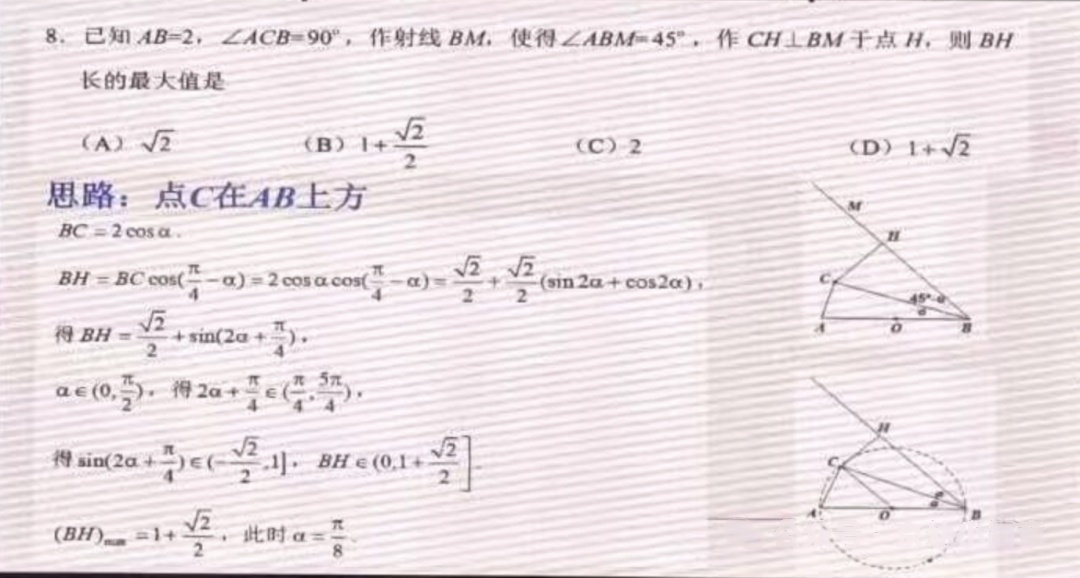 8. 已知 AB=2, ∠ACB=90°, 作射线 BM, 使得∠ABM=45°, 作 CH⊥BM 于点 H, 则 BH
长的最大值是
(A) √2 (B) 1+√2/2 (C) 2 (D) 1+√2
思路: 点C在AB上方
BC = 2cosα.
BH = BC cos(π/4-α) = 2cosαcos(π/4-α) = √2/2 + √2/2(sin2α+cos2α),
得 BH = √2/2 + sin(2α+π/4),
α∈(0,π/2), 得 2α+π/4∈(π/4,5π/4),
得 sin(2α+π/4)∈(-√2/2,1], BH∈(0,1+√2/2].
(BH)max = 1+√2/2, 此时 α=π/8.
M
H
C
45°-α
α
A O B
H
C
α
α
A O B